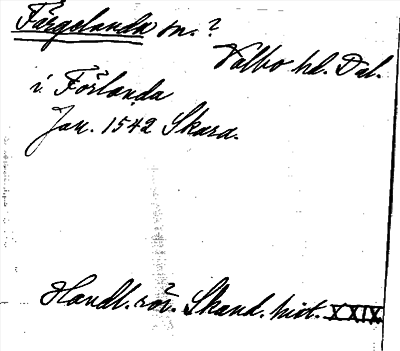 Färgelanda sn.?
Valbo hd. Dal.
i Förlanda
Jan. 1542 Skara.
Handl. rör. Skand. hist. XXIX